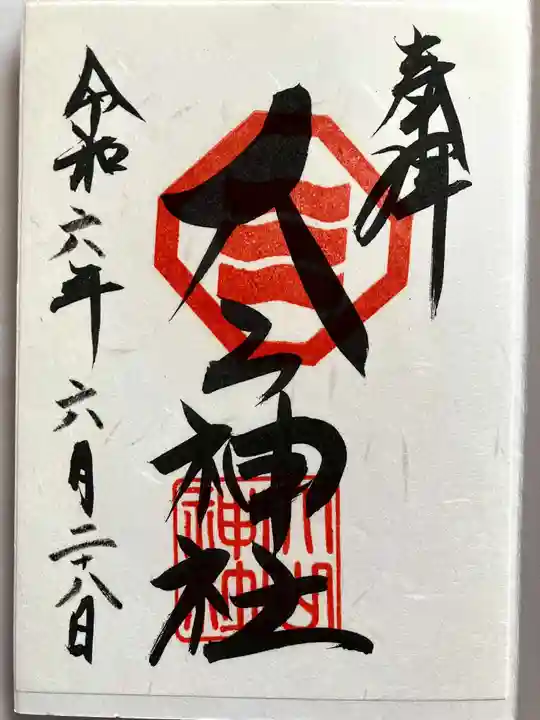 奉拝
大山神社
令和六年六月二十八日
大山
神社